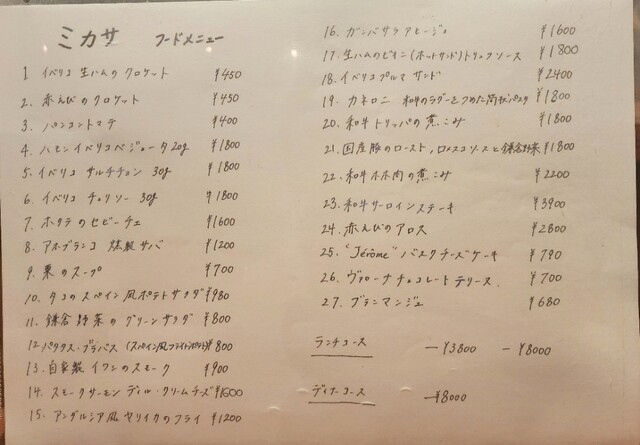 ミカサ フードメニュー
1 イベリコ生ハムのクロケット ¥450
2. 赤えびのクロケット ¥450
3 パンコントマテ ¥400
4. ハモンイベリコベジョータ 20g ¥1800
5. イベリコ サルチチョン 30g ¥1800
6 イベリコ チョリソー 30g ¥1800
7. ホタテのセビーチェ ¥1600
8. アホブランコ 燻製サバ ¥1200
9. 栗のスープ ¥700
10. タコのスペイン風ポテトサラダ ¥980
11. 鎌倉野菜のグリーンサラダ ¥800
12 パタタス・ブラバス (スペイン風フライドポテト) ¥800
13. 自家製イワシのスモーク ¥900
14. スモークサーモン ディル・クリームチーズ ¥1600
15. アンダルシア風ヤリイカのフライ ¥1200
16. ガンバサラアヒージョ ¥1600
17. 生ハムのビキニ (ホットサンド) トリュフソース ¥1800
18. イベリコプルマ サンド ¥2400
19. カネロニ 和牛のラグーをつめた筒状パスタ ¥1800
20. 和牛トリッパの煮こみ ¥1800
21. 国産豚のロースト,ロメスコソースと鎌倉野菜 ¥1800
22. 和牛ホホ肉の煮こみ ¥2200
23. 和牛サーロインステーキ ¥3900
24. 赤えびのアロス ¥2800
25. "Jérôme" バスクチーズケーキ ¥790
26. ヴァローナチョコレートテリーヌ. ¥700
27. ブランマンジェ ¥680
ランチコース —¥3800 —¥8000
ディナーコース —¥8000